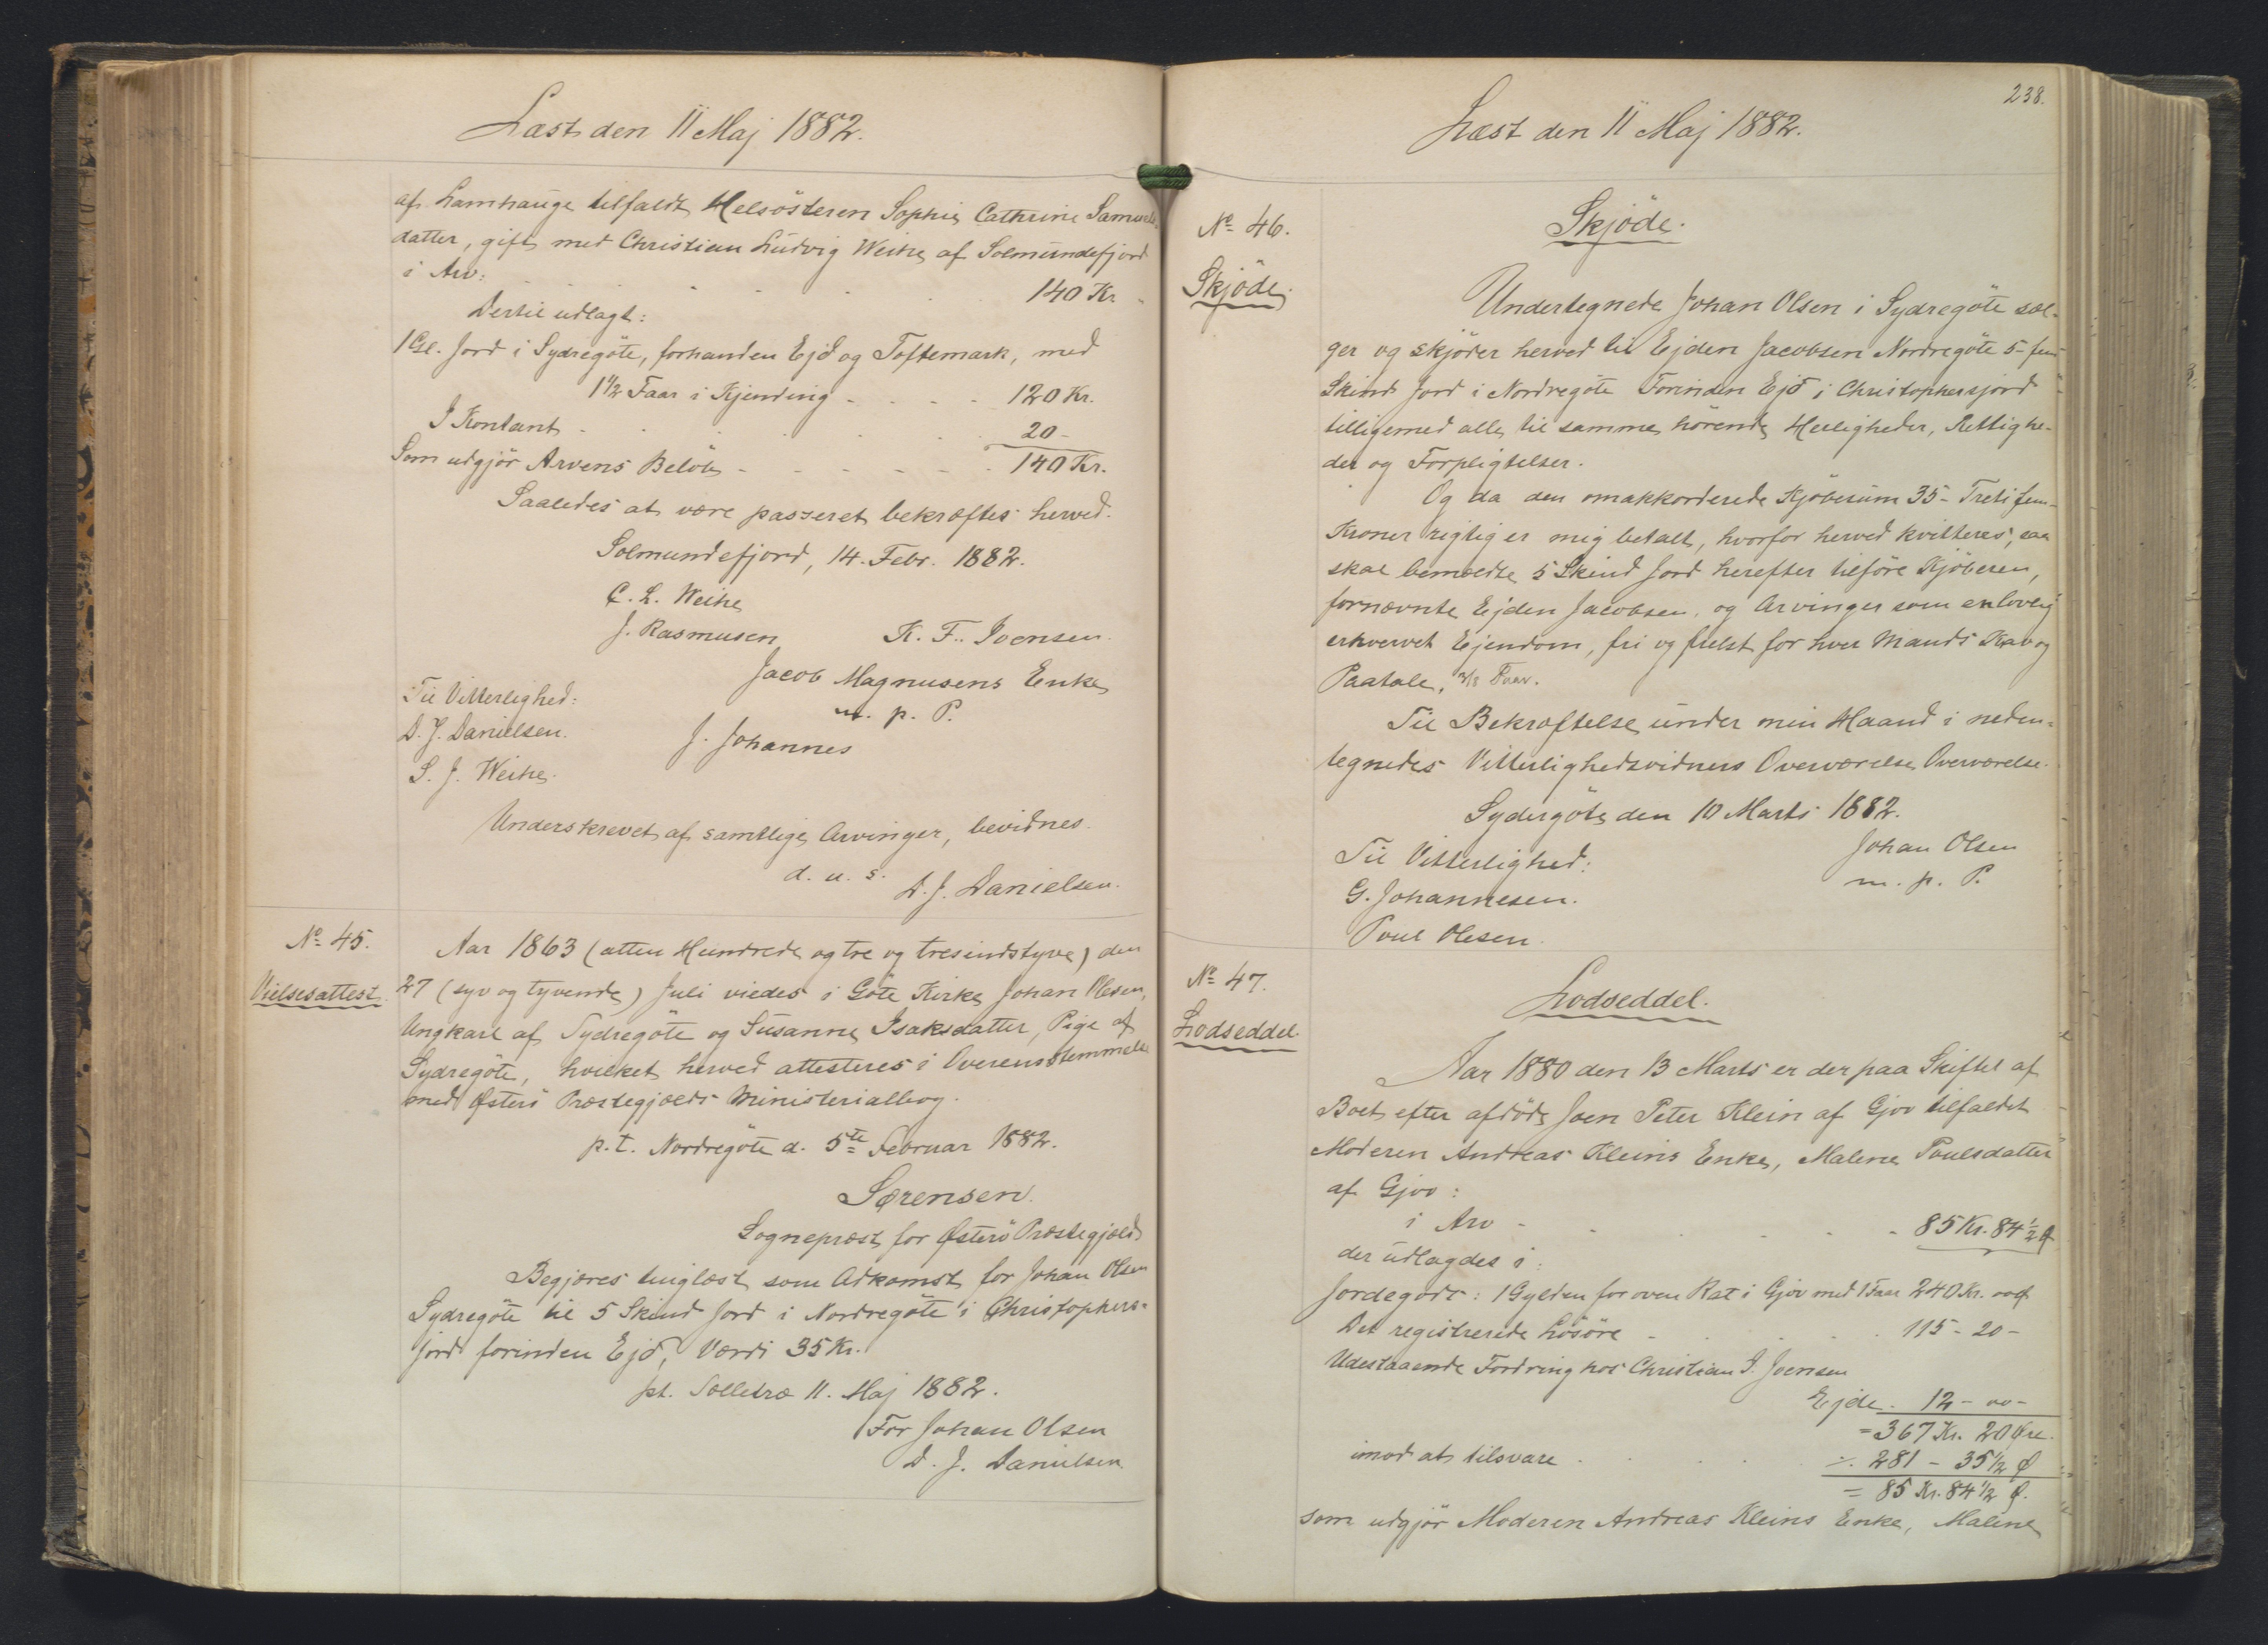 Læst den 11 Maj 1882.
af Lamhauge tilfaldt Helsösteren Sophie Cathrine Samuels-
datter, gift med Christian Ludvig Weihe af Solmundefjord
i Arv: 140 Kr.
Dertil udlagt:
1 Gl. Jord i Sydregöte, forhanden Ejd og Toftemark, med
1 1/2 Faar i Kjending - - - - 120 Kr.
I Kontant - 20 -
Som udgjör Arvens Belöb - - - - - - 140 Kr.
Saaledes at være passeret bekræftes herved.
Solmundefjord, 14. Febr. 1882.
C. L. Weihe
J. Rasmusen K. F. Joensen.
Jacob Magnusens Enke
m. p. P.
Til Vitterlighed:
D. J. Danielsen. J. Johannes
S. J. Weihe.
Underskrevet af samtlige Arvinger, bevidnes.
d. u. s. D. J. Danielsen.
No 45.
Vielsesattest.
Aar 1863 (atten Hundrede og tre og tresindstyve) den
27 (syv og tyvende) Juli viedes i Göte Kirke Johan Olesen,
Ungkarl af Sydregöte og Susanne Isaksdatter, Pige af
Sydregöte, hvilket herved attesteres i Overensstemmelse
med Østerö Præstegjælds Ministerialbog.
p. t. Nordregöte d. 5te Februar 1882.
Sørensen.
Sognepræst for Østerö Præstegjæld
Begjæres tinglæst som Adkomst for Johan Olsen
Sydregöte til 5 Skind Jord i Nordregöte i Christophers-
jord forinden Ejd, Værdi 35 Kr.
pt. Selletræ 11. Maj 1882.
For Johan Olsen
D. J. Danielsen.
238.
Læst den 11 Maj 1882.
No 46.
Skjöde.
Skjöde.
Undertegnede Johan Olsen i Sydregöte sæl-
ger og skjöder herved til Ejden Jacobsen Nordregöte 5 - fem
Skind Jord i Nordregöte Forinden Ejd i Christophersjord
tilligemed alle til samme hörende Herligheder, Rettighe-
der og Forpligtelser.
Og da den omakkorderede Kjöbesum 35 - Treti fem -
Kroner rigtig er mig betalt, hvorfor herved kvitteres, saa
skal bemeldte 5 Skind Jord herefter tilföre Kjöberen,
fornævnte Ejden Jacobsen, og Arvinger som en lovlig
erhvervet Ejendom, fri og frelst for hver Mands Krav og
Paatale, Faar.
Til Bekræftelse under min Haand i neden-
tegnedes Vitterlighedsvidners Overværelse Overværelse.
Sydergöte den 10 Marts 1882.
Til Vitterlighed: Johan Olsen
G. Johannesen. m. p. P.
Poul Olesen.
No 47.
Lodseddel.
Lodseddel.
Aar 1880 den 13 Marts er der paa Skiftet af
Boet efter afdöde Joen Peter Klein af Gjov tilfaldet
Moderen Andreas Kleins Enke, Malene Poulsdatter
af Gjov:
i Arv - - 85 Kr. 84 1/2 Ø
der udlagdes i:
Jordegods: 1 Gylden for oven Rat i Gjov med 1 Faar 240 Kr. 00 Ø
Det registrerede Lösöre - 115 - 20 -
Udestaaende Fordring hos Christian J. Joensen
Ejde - 12 - 00 -
= 367 Kr. 20 Øre.
imod at tilsvare ÷ 281 - 35 1/2 Ø
= 85 Kr. 84 1/2 Ø.
som udgjör Moderen Andreas Kleins Enke, Malene